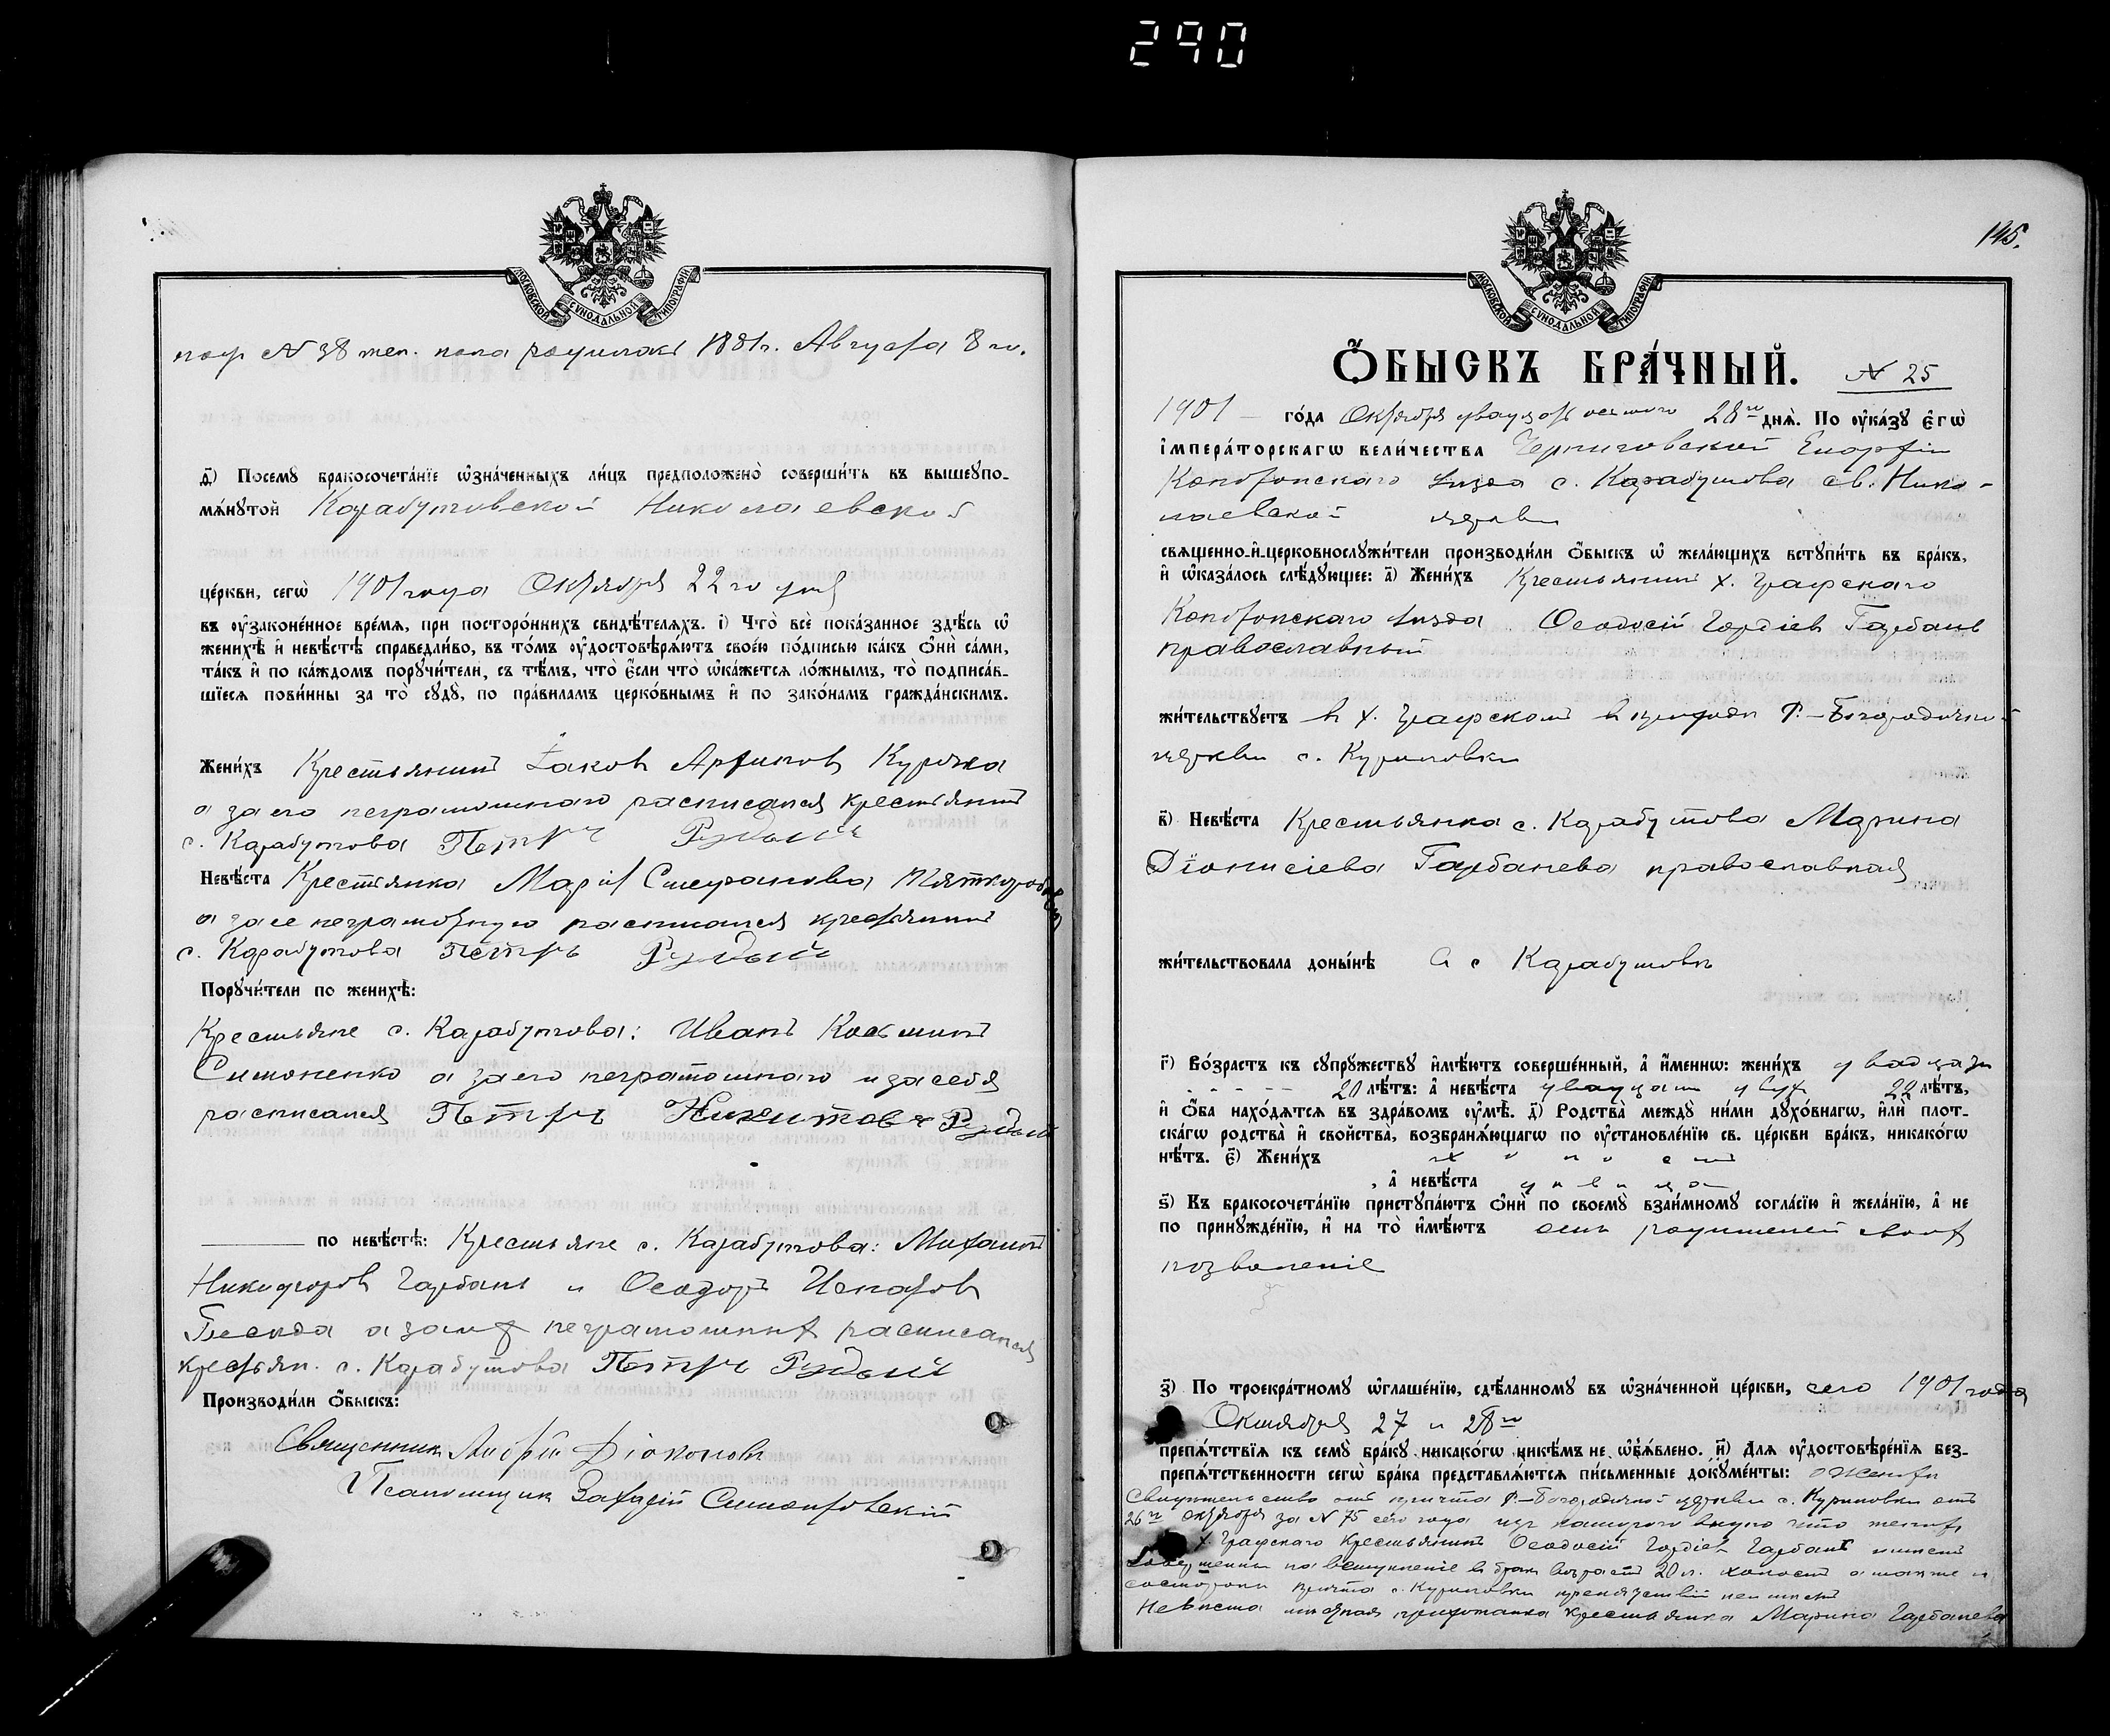 290
МОСКОВСКОЙ СУНОДАЛЬНОЙ ТИПОГРАФІИ
под N 38 жен. пола родилась 1881 г. Августа 8 го.
д҃) Посемꙋ бракосочета́нїе ѡ҆зна́ченныхъ ли́цъ предположено̀ соверши́ть въ вышеꙋпо-
мѧ́нꙋтой Карабутовской Николаевской
це́ркви, сегѡ̀ 1901 года Октября 22 го дня
въ ᲂу҆зако́ненное вре́мѧ, при посторо́ннихъ свидѣ́телѧхъ. і҃) Что̀ всѐ пока́занное здѣ́сь ѡ҆
женихѣ̀ и҆ невѣ́стѣ справедли́во, въ то́мъ ᲂу҆достовѣрѧ́ютъ свое́ю по́дписью ка́къ ѻ҆нѝ са́ми,
та́къ и҆ по ка́ждомъ порꙋчи́тели, съ тѣ́мъ, что̀ є҆́сли что̀ ѡ҆ка́жетсѧ ло́жнымъ, то̀ подписа́в-
шїесѧ пови́нны за то̀ сꙋдꙋ̀, по пра́виламъ церко́внымъ и҆ по зако́намъ гражда́нскимъ.
Жени́хъ Крестьянинъ Іаковъ Курочка
а за его неграмотнаго расписался крестьянинъ
с. Карабутова Петръ Рудый
Невѣ́ста Крестьянка Марія Стефанова
а за ее неграмотную расписался крестьянинъ
с. Карабутова Петръ Рудый
Порꙋчи́тели по женихѣ̀:
Крестьяне с. Карабутова: Иванъ Косьминъ
Симоненко а за его неграмотнаго и за себя
расписался Петръ Никитовъ Рудый
по невѣ́стѣ: Крестьяне с. Карабутова: Михаилъ
Никифоровъ Гарбань и Ѳеодоръ
а за их неграмотных расписался
крестьян. с. Карабутова Петръ Рудый
Производи́ли ѻ҆́быскъ:
Священникъ Андрій Діоконовъ
Псаломщикъ Захарій
145.
МОСКОВСКОЙ СУНОДАЛЬНОЙ ТИПОГРАФІИ
Ѻ҆́БЫСКЪ БРА́ЧНЫЙ. N 25
1901 го́да Октября двадцать осьмого 28го днѧ̀. По ᲂу҆ка́зꙋ є҆гѡ̀
і҆мпера́торскагѡ вели́чества Черниговской Епархіи
Конотопского уѣзда с. Карабутова св. Нико-
лаевской церкви
свѧще́нно-и҆-церковнослꙋжи́тели производи́ли ѻ҆́быскъ ѡ҆ жела́ющихъ встꙋпи́ть въ бра́къ,
и҆ ѡ҆каза́лось слѣ́дꙋющее: а҃) Жени́хъ Крестьянинъ х. Графскаго
Конотопского уѣзда Ѳеодосій Гордіевъ Гарбань
православный
жи́тельствꙋетъ въ х. Графскомъ въ приходѣ Р.-Богородичной
церкви с. Куриловки
в҃) Невѣ́ста Крестьянка с. Карабутова Марина
Діонисіева Гарбанева православная
жи́тельствовала доны́нѣ въ с Карабутовѣ
г҃) Во́зрастъ къ сꙋпрꙋ́жествꙋ и҆мѣ́ютъ соверше́нный, а҆ и҆́меннѡ: жени́хъ двадцать
20 лѣ́тъ: а҆ невѣ́ста двадцать двух 22 лѣ́тъ,
и҆ ѻ҆́ба нахо́дѧтсѧ въ здра́вомъ ᲂу҆мѣ̀. д҃) Родства̀ междꙋ̀ ни́ми дꙋхо́внагѡ, и҆лѝ плот-
ска́гѡ родства̀ и҆ сво́йства, возбранѧ́ющагѡ по ᲂу҆становле́нїю св. це́ркви бра́къ, никако́гѡ
нѣ́тъ. є҃) Жени́хъ холостъ
, а҆ невѣ́ста дѣвица
ѕ҃) Къ бракосочета́нїю пристꙋпа́ютъ ѻ҆нѝ по своемꙋ̀ взаи́мномꙋ согла́сїю и҆ жела́нїю, а҆ не
по принꙋжде́нїю, и҆ на то̀ и҆мѣ́ютъ родителей своих
позволеніе
з҃) По троекра́тномꙋ ѡ҆глаше́нїю, сдѣ́ланномꙋ въ ѡ҆зна́ченной це́ркви, сего 1901 года
Октября 27 и 28го
препѧ́тствїѧ къ семꙋ̀ бра́кꙋ никако́гѡ никѣ́мъ не ѡ҆б̾ѧ́влено. и҃) Длѧ ᲂу҆достовѣре́нїѧ без-
препѧ́тственности сегѡ̀ бра́ка представлѧ́ютсѧ пи́сьменные докꙋме́нты: о женихѣ
свидетельство отъ причта Р.-Богородичной церкви с. Куриловки отъ
26го октября за N 75 сего года изъ которого видно что женихъ
х. Графскаго крестьянинъ Ѳеодосій Гордіевъ Гарбань имѣетъ
на вступленіе въ бракъ возрастъ 20 л. холостъ а также и
со стороны причта с. Куриловки препятствій не имѣетъ
Невѣста крестьянка Марина Гарбанева